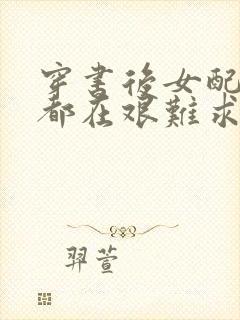 穿書後女配
都在艱難求
羿萱